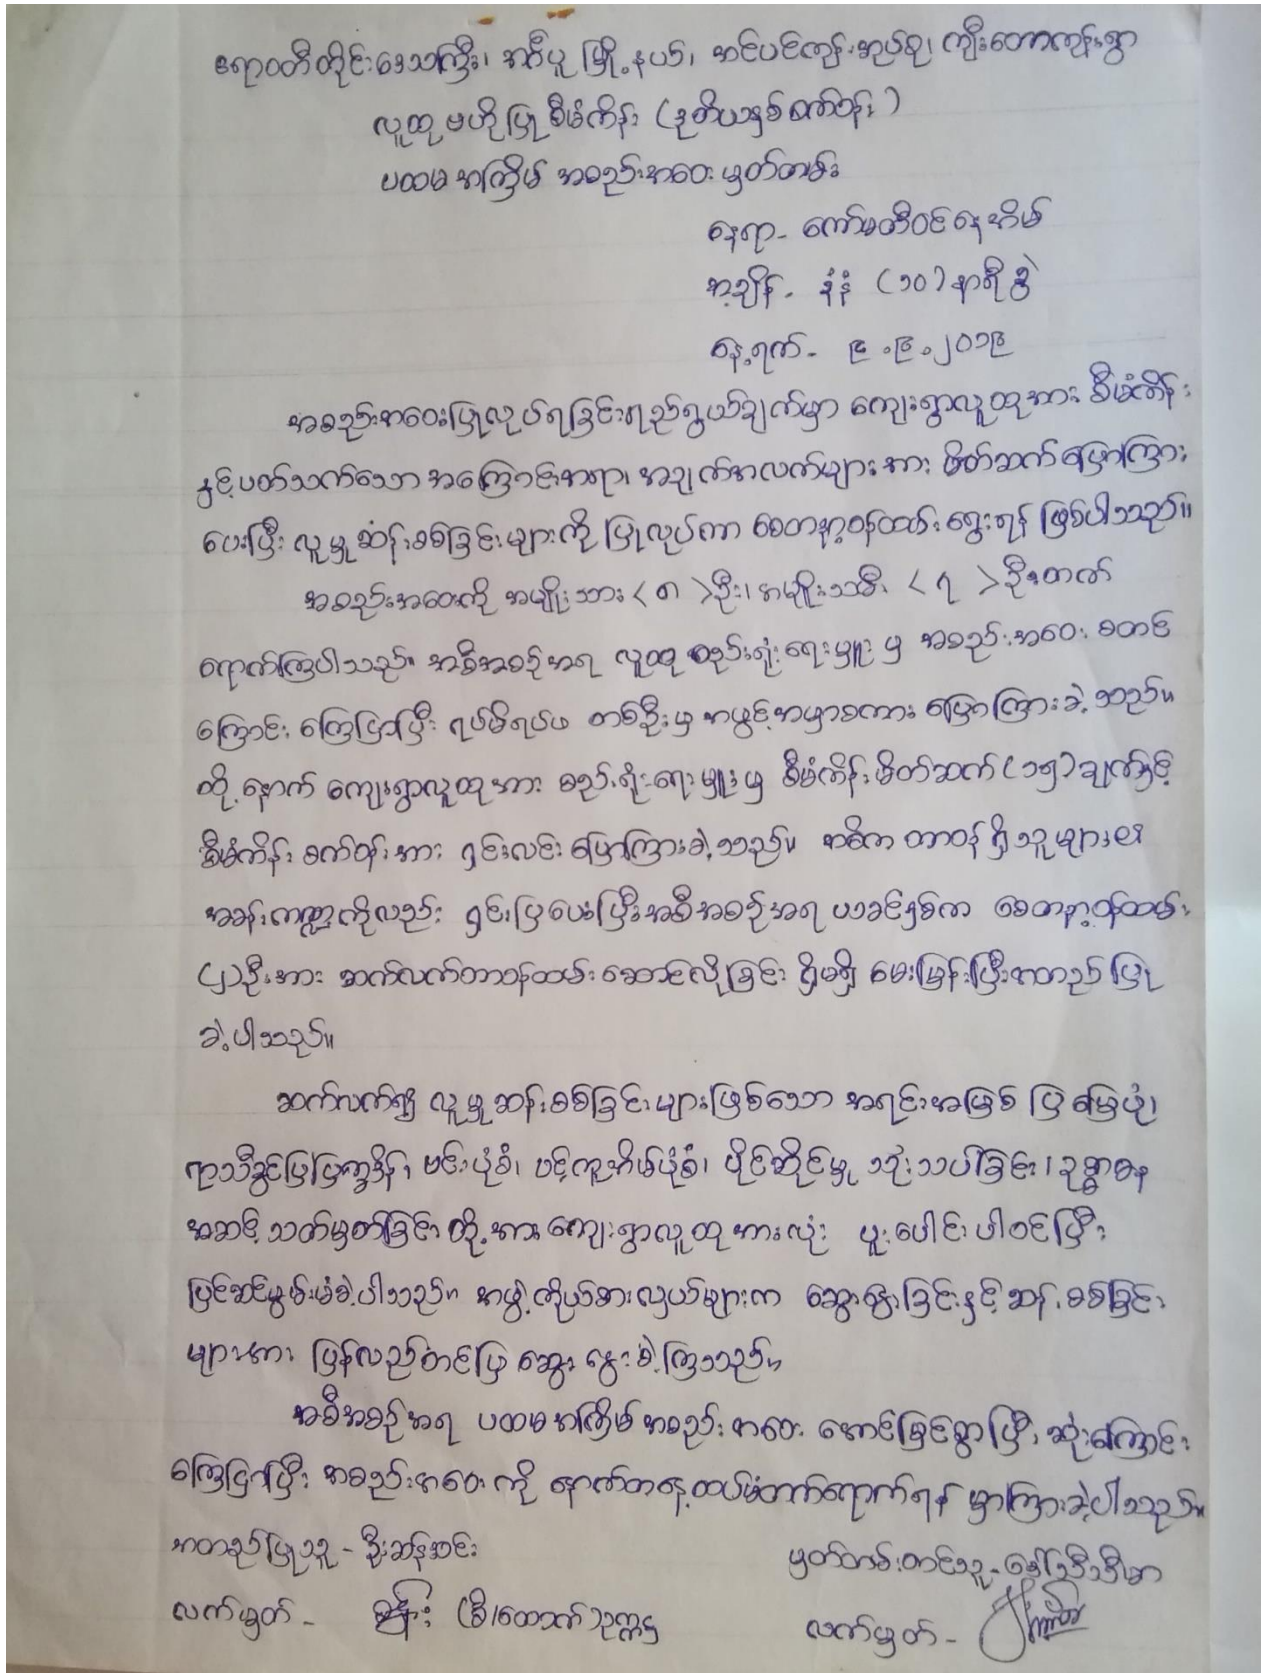 ဧရာဝတီတိုင်းဒေသကြီး၊ အင်္ဂပူမြို့နယ်၊ အင်ပင်ကုန်းအုပ်စု၊ ကျီးတောကုန်းရွာ
လူထုဗဟိုပြုစီမံကိန်း (ဒုတိယနှစ်စက်ဝန်း)
ပထမအကြိမ် အစည်းအဝေးမှတ်တမ်း
နေရာ - ကော်မတီဝင်နေအိမ်
အချိန် - နံနံ (၁၀) နာရီခွဲ
နေ့ရက် - ၉.၉.၂၀၁၉
အစည်းအဝေးပြုလုပ်ရခြင်းရည်ရွယ်ချက်မှာ ကျေးရွာလူထုအား စီမံကိန်း
နှင့်ပတ်သက်သော အကြောင်းအရာ၊ အချက်အလက်များအား မိတ်ဆက်ပြောကြား
ပေးပြီး လူမှုဆန်းစစ်ခြင်းများကို ပြုလုပ်ကာ စေတနာ့ဝန်ထမ်းရွေးရန် ဖြစ်ပါသည်။
အစည်းအဝေးကို အမျိုးသား < ၈ > ဦး၊ အမျိုးသမီး < ၇ > ဦးတက်
ရောက်ကြပါသည်။ အစီအစဉ်အရ လူထုစည်းရုံးရေးမှူးမှ အစည်းအဝေး စတင်
ကြောင်း ကြေငြာပြီး ရပ်မိရပ်ဖ တစ်ဦးမှ အဖွင့်အမှာစကား ပြောကြားခဲ့သည်။
ထို့နောက် ကျေးရွာလူထုအား စည်းရုံးရေးမှူးမှ စီမံကိန်းမိတ်ဆက် (၁၅) ချက်နှင့်
စီမံကိန်း စက်ဝန်းအား ရှင်းလင်းပြောကြားခဲ့သည်။ အဓိက တာဝန်ရှိသူများ၏
အခန်းကဏ္ဍကိုလည်း ရှင်းပြပေးပြီး အစီအစဉ်အရ ယခင်နှစ်က စေတနာ့ဝန်ထမ်း
(၂) ဦးအား ဆက်လက်တာဝန်ထမ်းဆောင်လိုခြင်း ရှိမရှိ မေးမြန်းပြီး အတည်ပြု
ခဲ့ပါသည်။
ဆက်လက်၍ လူမှုဆန်းစစ်ခြင်းများဖြစ်သော အရင်းအမြစ်ပြမြေပုံ၊
ရာသီခွင်ပြပြက္ခဒိန်၊ ဗင်းပုံစံ၊ ပင့်ကူအိမ်ပုံစံ၊ ပိုင်ဆိုင်မှု သုံးသပ်ခြင်း၊ ဥစ္စာဓန
အဆင့်သတ်မှတ်ခြင်းတို့အား ကျေးရွာလူထုအားလုံး ပူးပေါင်းပါဝင်ပြီး
ပြင်ဆင်မွမ်းမံခဲ့ပါသည်။ အဖွဲ့ကိုယ်စားလှယ်များက ဆွေးနွေးခြင်းနှင့် ဆန်းစစ်ခြင်း
များအား ပြန်လည်တင်ပြ ဆွေးနွေးခဲ့ကြသည်။
အစီအစဉ်အရ ပထမအကြိမ် အစည်းအဝေး အောင်မြင်စွာပြီးဆုံးကြောင်း
ကြေငြာပြီး အစည်းအဝေးကို နောက်တနေ့ ထပ်မံတက်ရောက်ရန် မှာကြားခဲ့ပါသည်။
အတည်ပြုသူ - ဦးဆန်အင်း
မှတ်တမ်းတင်သူ - ဒေါ်သီသီမာ
လက်မှတ် - (စီ/ထောက်) ဥက္ကဌ
လက်မှတ် -